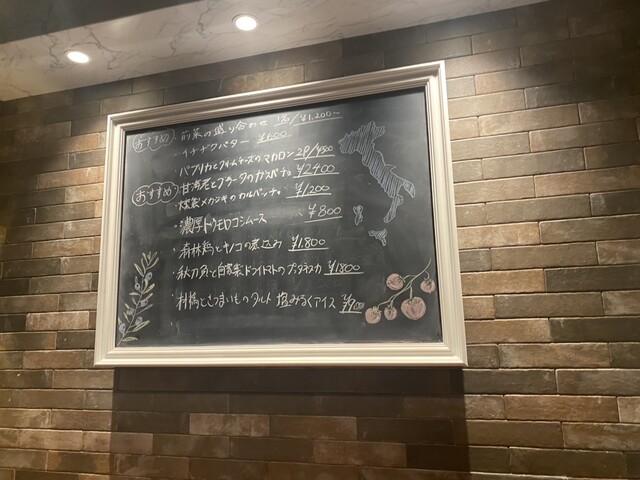 おすすめ 前菜の盛り合わせ ¥1,200~
・イチヂクバター ¥600
・パプリカとクリームチーズのマカロン 2P/¥500
おすすめ 甘海老とブラータのガスパチョ ¥2400
・燻製メカジキのカルパッチョ ¥1,200
・濃厚トウモロコシムース ¥800
・森林鶏とキノコの煮込み ¥1,800
・秋刀魚と自家製ドライトマトのプッタネスカ ¥1800
さつまいものタルト 塩みるくアイス